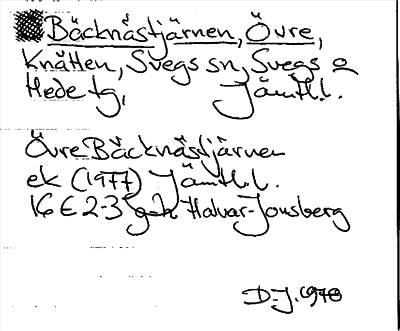 Bäcknästjärnen, Övre,
Knätten, Svegs sn, Svegs o
Hede tg, Jämtl.l.
Övre Bäcknästjärnen
ek (1977) Jämtl.l.
16 E 2-3 g-h Halvar-Jonsberg
D-J. 1978